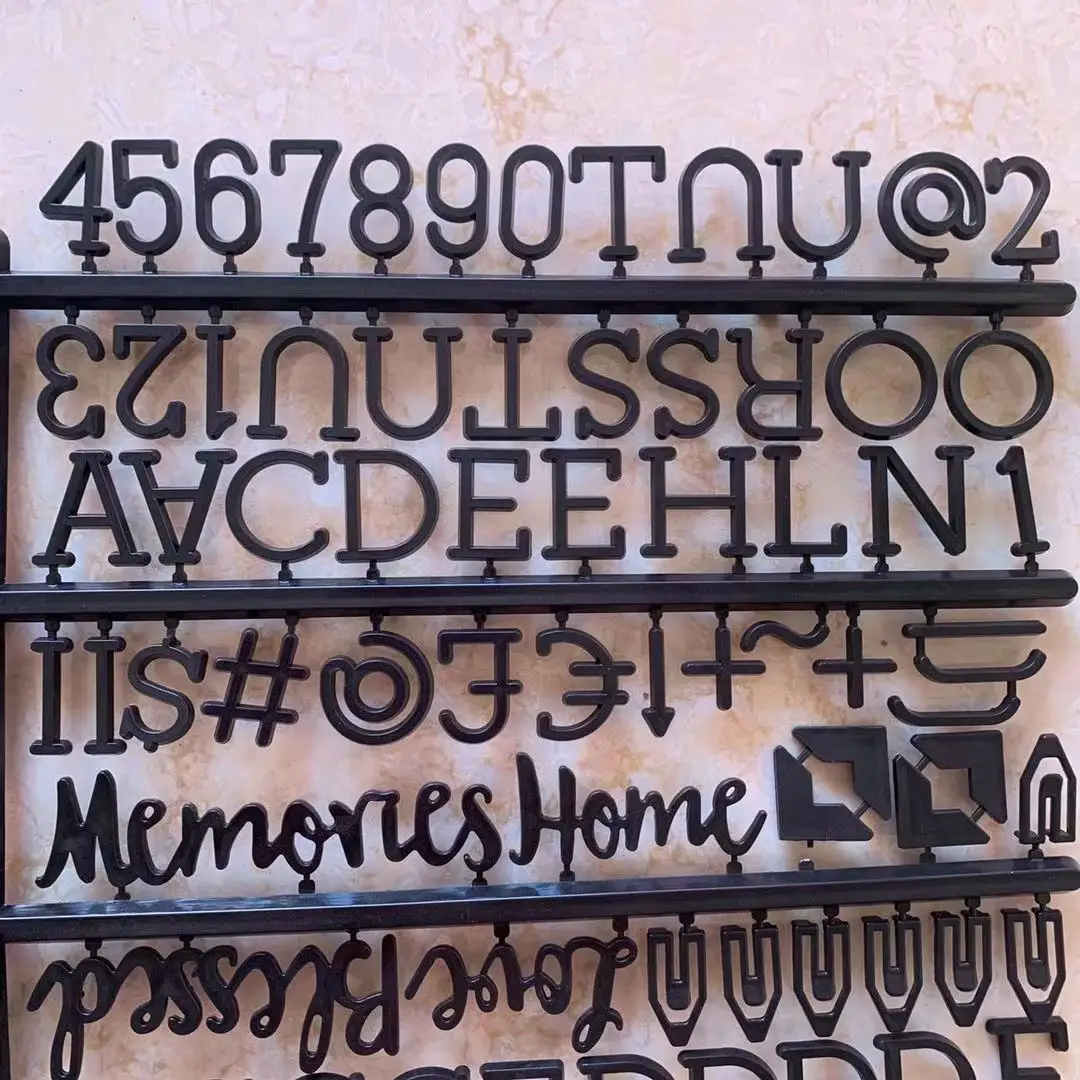 4567890TUU@2
OORSSTUU123
AACDEEHLN1
+~+↑€£@#$II
Memories Home
Love Blessed